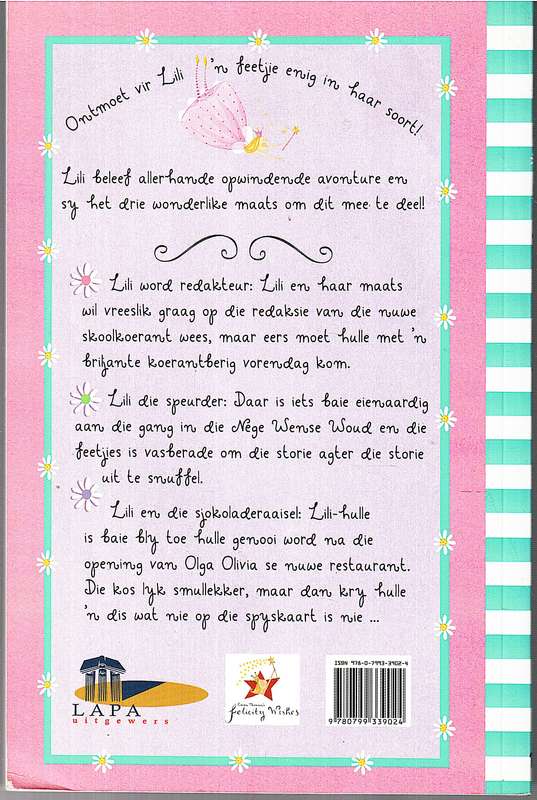 Ontmoet vir Lili 'n feetjie enig in haar soort!
Lili beleef allerhande opwindende avonture en
sy het drie wonderlike maats om dit mee te deel!
Lili word redakteur: Lili en haar maats
wil vreeslik graag op die redaksie van die nuwe
skoolkoerant wees, maar eers moet hulle met 'n
briljante koerantberig vorendag kom.
Lili die speurder: Daar is iets baie eienaardig
aan die gang in die Nege Wense Woud en die
feetjies is vasberade om die storie agter die storie
uit te snuffel.
Lili en die sjokoladeraaisel: Lili-hulle
is baie bly toe hulle genooi word na die
opening van Olga Olivia se nuwe restaurant.
Die kos lyk smullekker, maar dan kry hulle
'n dis wat nie op die spyskaart is nie ...
LAPA
uitgewers
Emma Thomson's
Felicity Wishes
ISBN 978-0-7993-3902-4
9 780799 339024